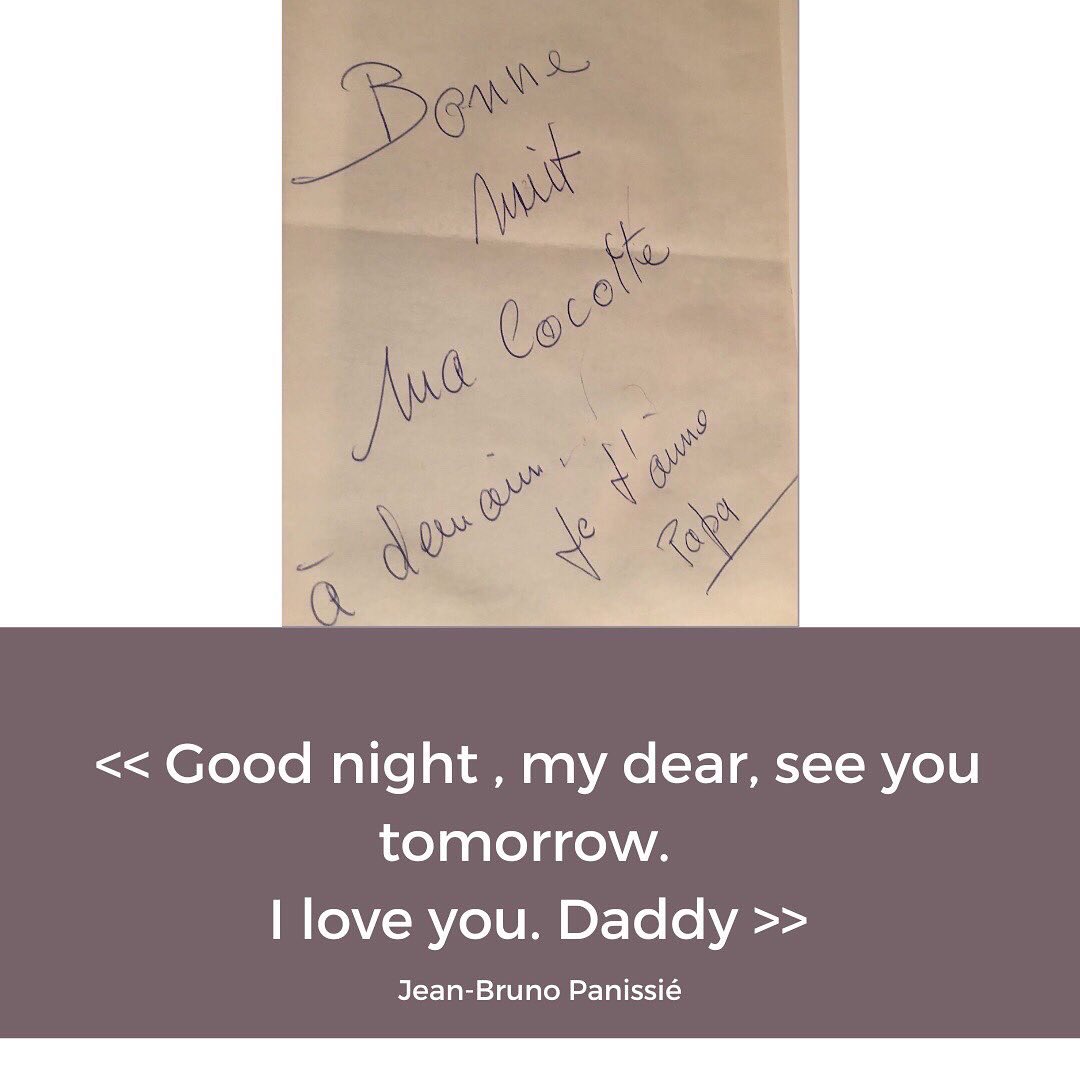 Bonne
nuit
Ma Cocotte
à demain.
Je t'aime
Papa
<< Good night , my dear, see you
tomorrow.
I love you. Daddy >>
Jean-Bruno Panissié